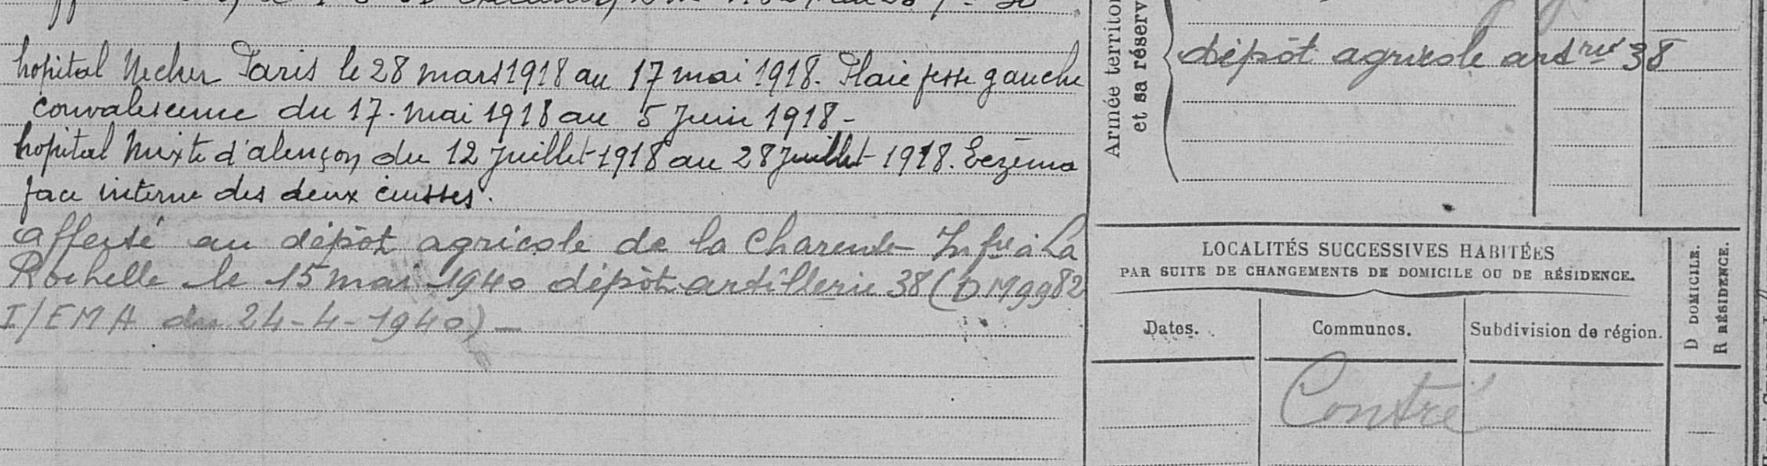 hopital Necker Paris le 28 mars 1918 au 17 mai 1918. Plaie fesse gauche
convalescence du 17. mai 1918 au 5 Juin 1918 -
hopital Mixte d'alençon du 12 Juillet 1918 au 28 Juillet 1918. Eczéma
face interne des deux cuisses.
affecté au dépôt agricole de la Charente Infre à La
Rochelle le 15 mai 1940 dépôt artillerie 38 (DM 9982
I/EMA du 24-4-1940) -
Armée territor
et sa réserv
dépôt agricole artrie 38
LOCALITÉS SUCCESSIVES HABITÉES
PAR SUITE DE CHANGEMENTS DE DOMICILE OU DE RÉSIDENCE.
Dates. Communes. Subdivision de région.
D DOMICILE.
R RÉSIDENCE.
Contré